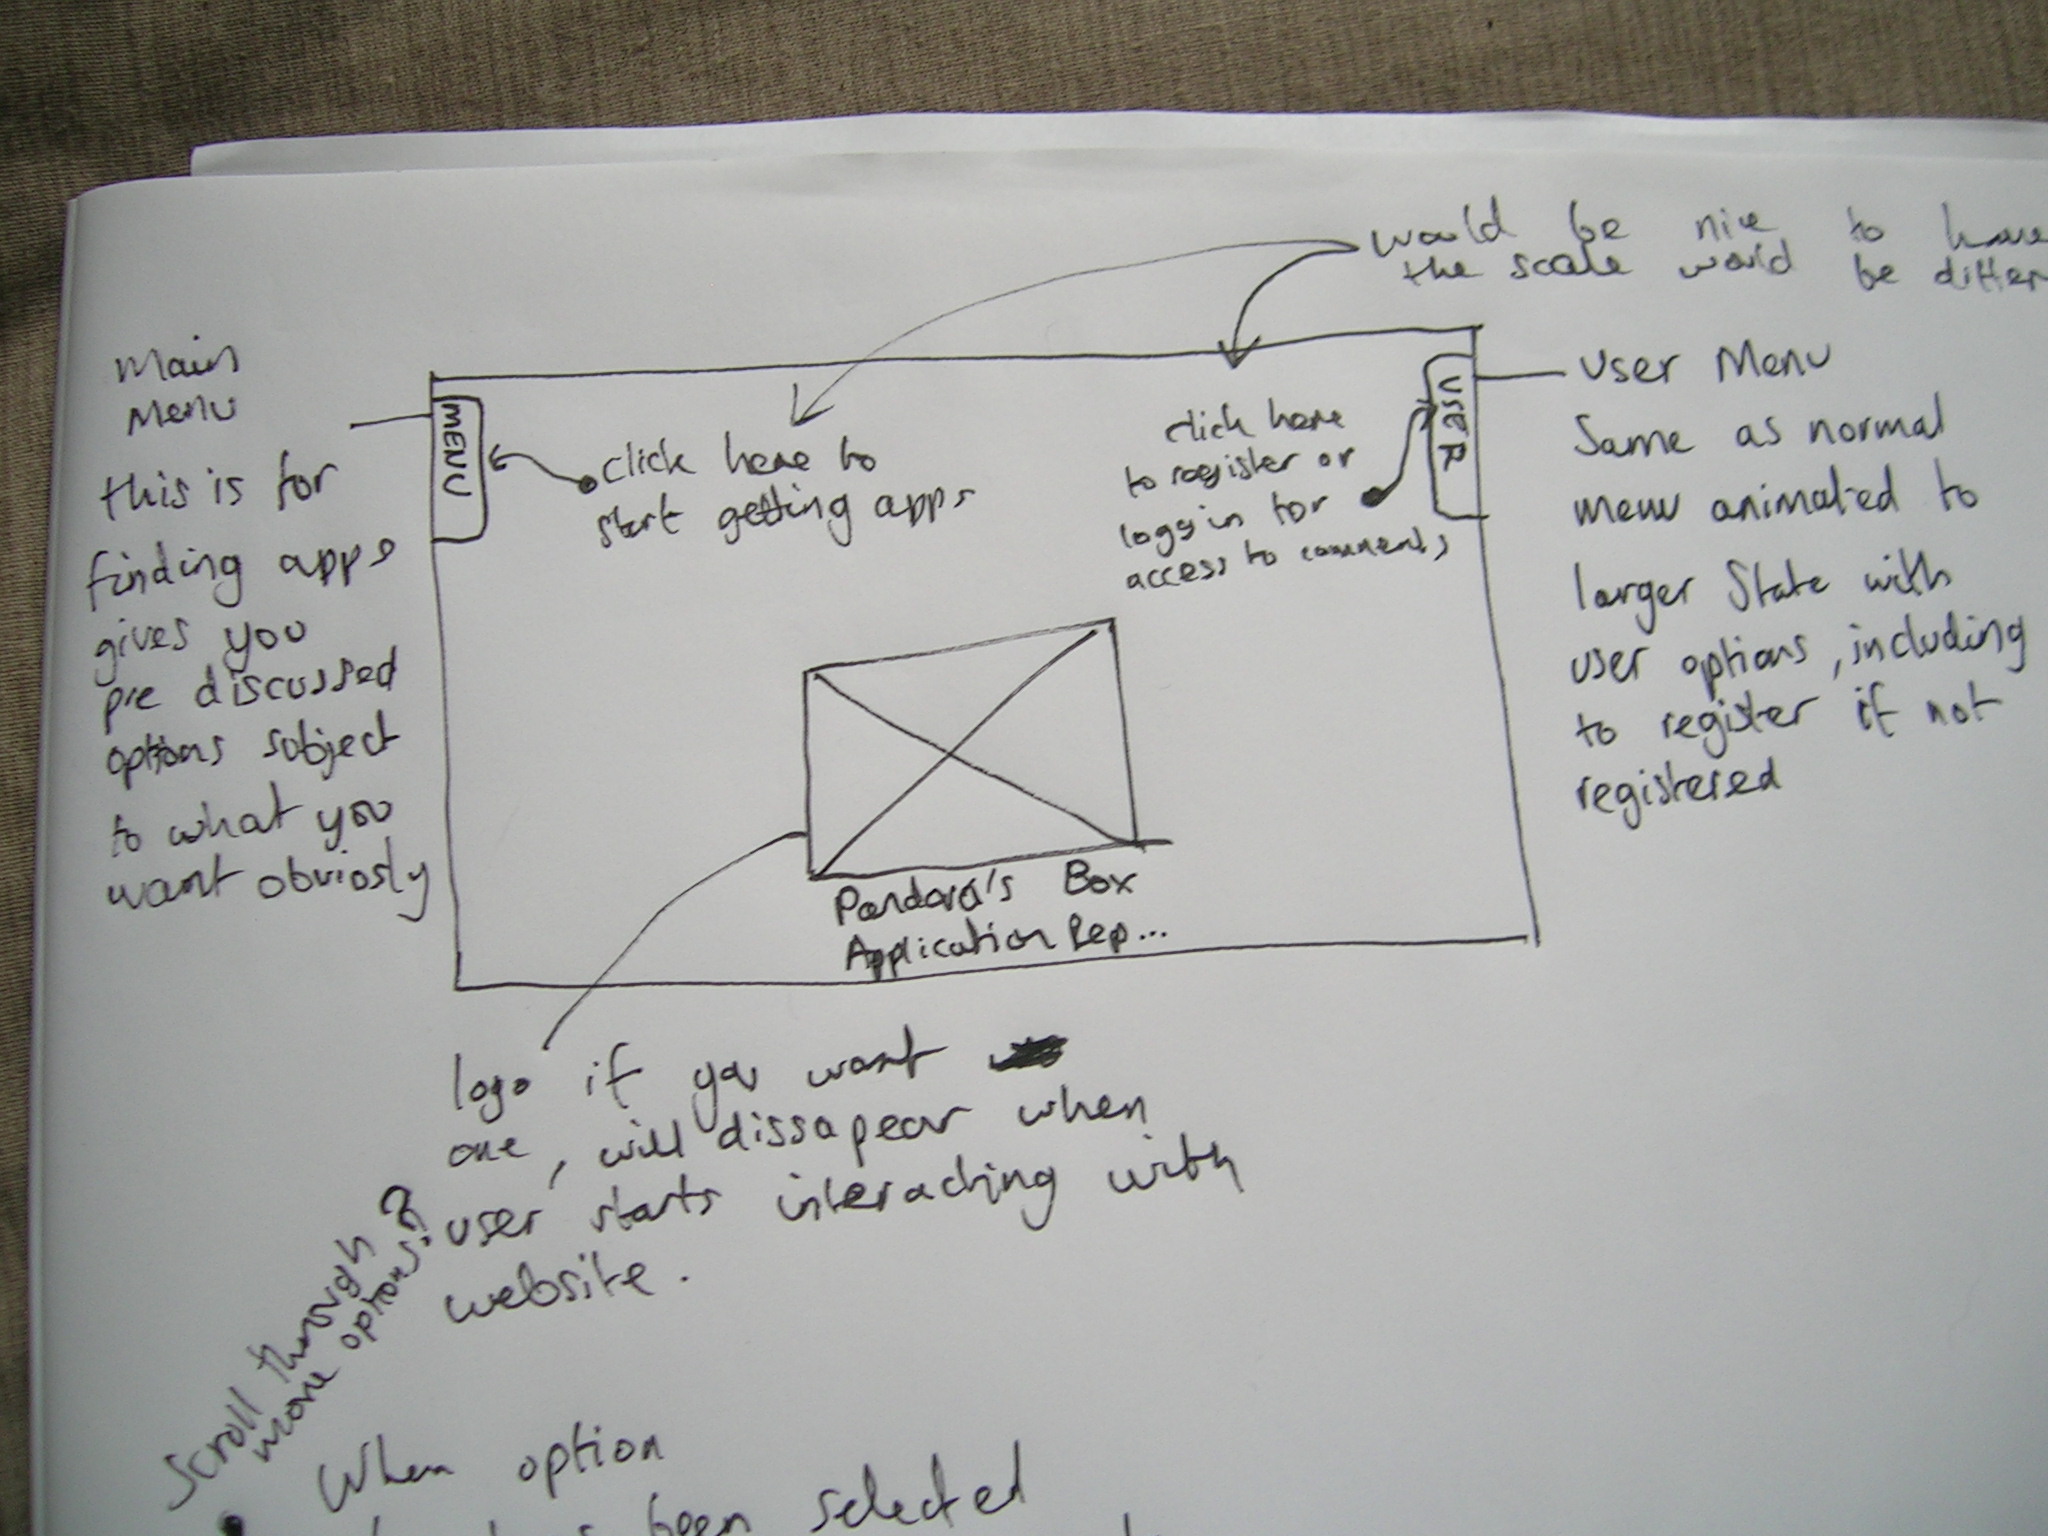 would be nice to have
the scale would be differ
Main
Menu
this is for
finding apps
gives you
pre discussed
options subject
to what you
want obviosly
MENU
click here to
start getting apps
click here
to register or
loggin for
access to comments
USER
User Menu
Same as normal
menu animated to
larger State with
user options, including
to register if not
registered
Pandora's Box
Application Rep...
logo if you want
one, will dissapear when
user starts interacting with
website.
Scroll through
more options?
When option
been selected